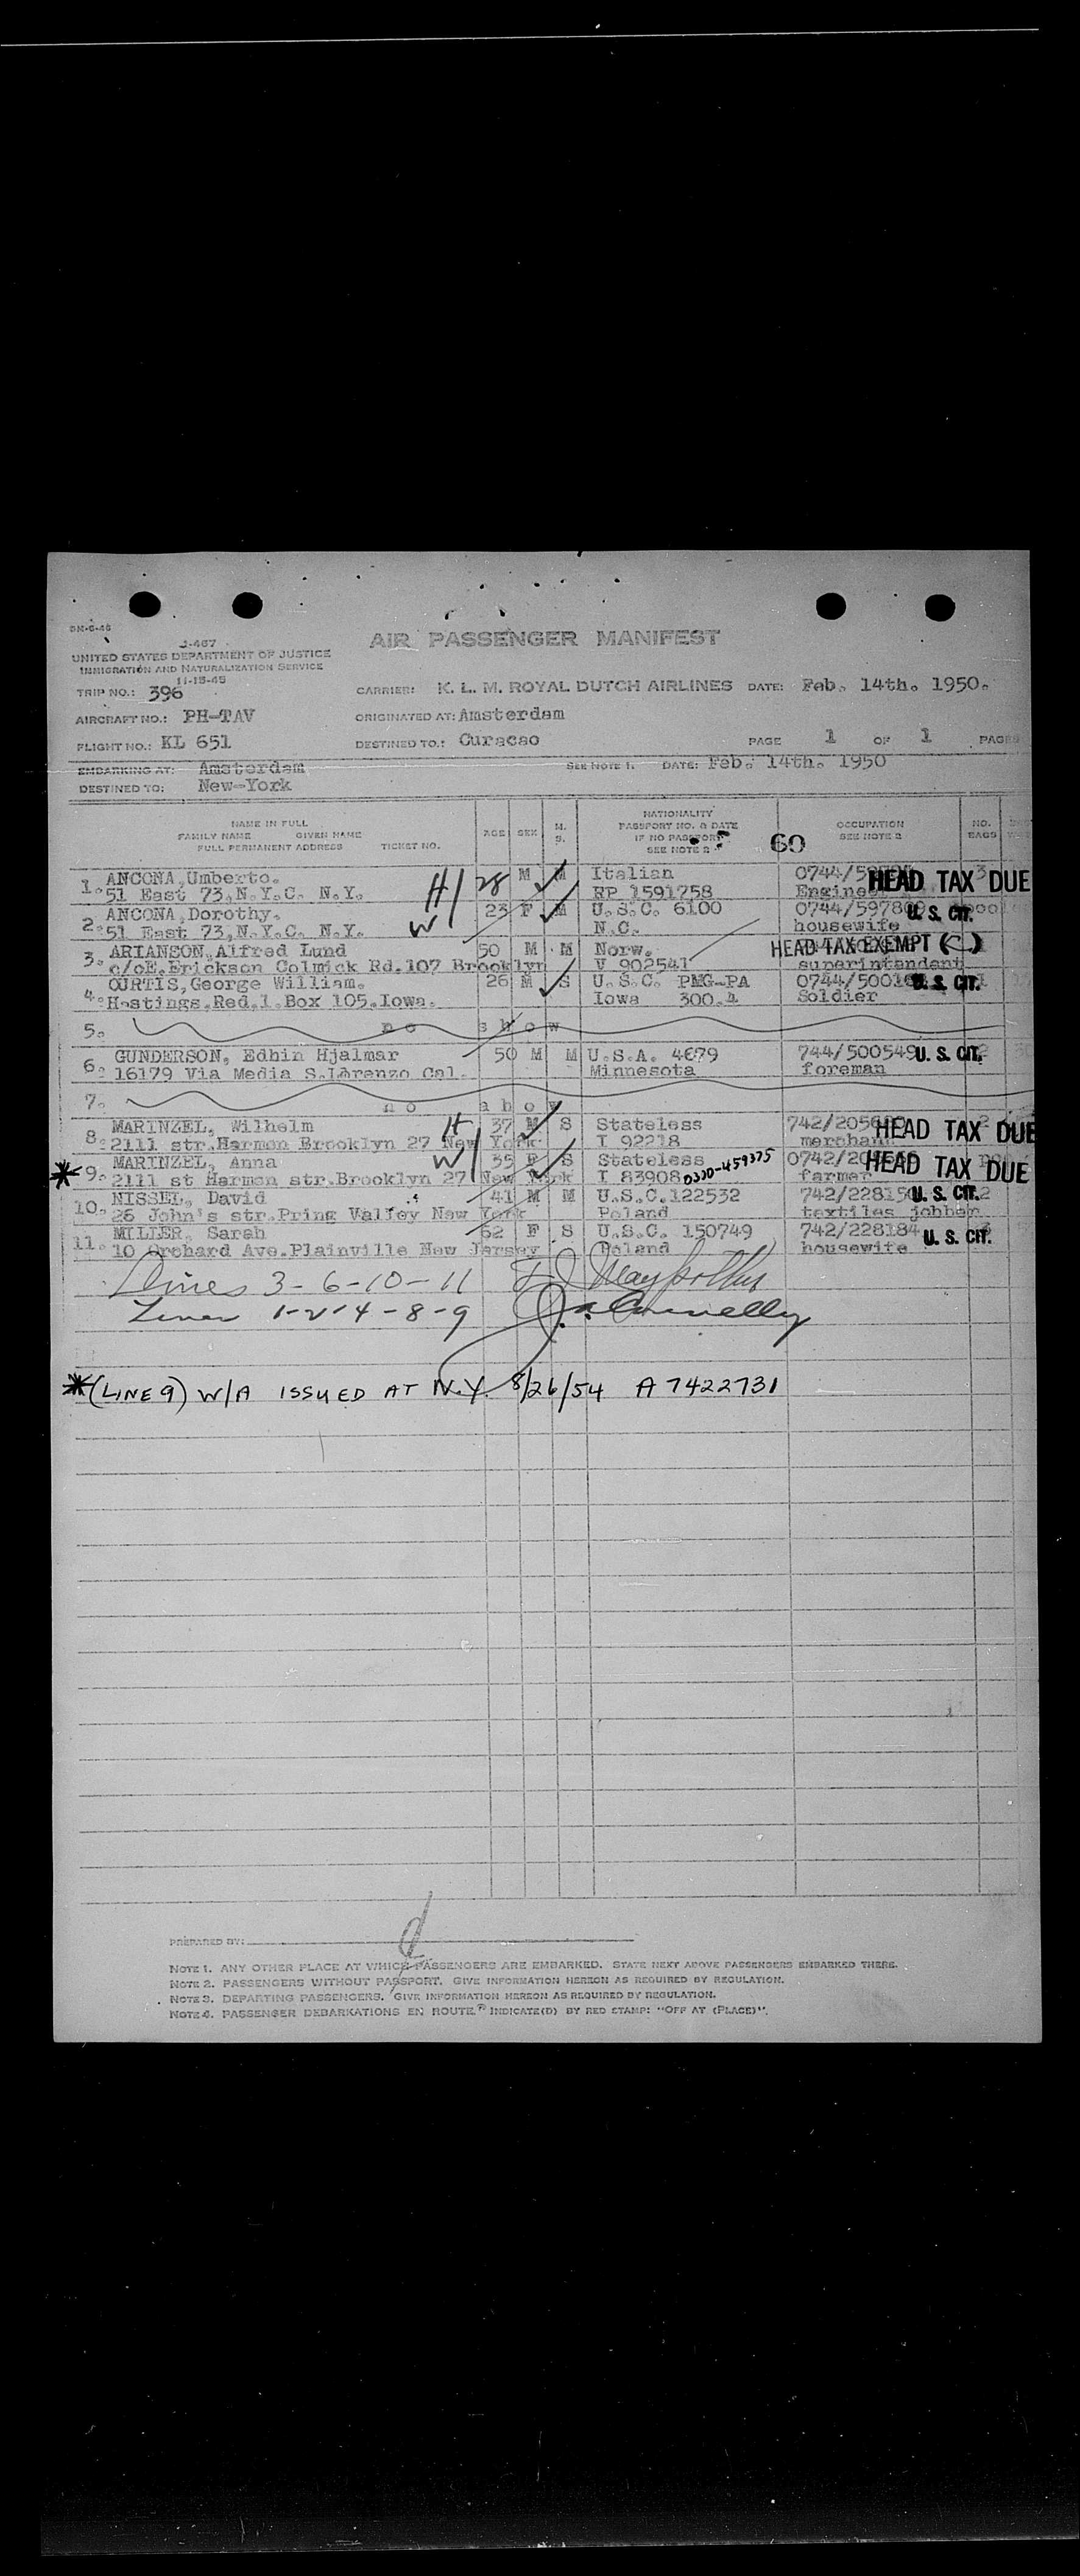 BN-6-46
I-467
UNITED STATES DEPARTMENT OF JUSTICE
IMMIGRATION AND NATURALIZATION SERVICE
11-15-45
AIR PASSENGER MANIFEST
TRIP NO.: 396
CARRIER: K. L. M. ROYAL DUTCH AIRLINES DATE: Feb. 14th. 1950.
AIRCRAFT NO.: PH-TAV
ORIGINATED AT: Amsterdam
FLIGHT NO.: KL 651
DESTINED TO.: Curacao
PAGE 1 OF 1 PAGES
EMBARKING AT: Amsterdam
SEE NOTE 1. DATE: Feb. 14th. 1950
DESTINED TO: New-York
NAME IN FULL
FAMILY NAME GIVEN NAME
FULL PERMANENT ADDRESS TICKET NO.
AGE SEX M. S.
NATIONALITY
PASSPORT NO. & DATE
IF NO PASSPORT
SEE NOTE 2
60
OCCUPATION
SEE NOTE 2
NO. BAGS
1. ANCONA, Umberto. H 28 M M Italian 0744/59 3 HEAD TAX DUE
51 East 73, N.Y.C. N.Y. RP 1591758 Engineer
2. ANCONA, Dorothy. W 23 F M U.S.C. 6100 0744/59780 U. S. CIT.
51 East 73, N.Y.C. N.Y. N.C. housewife
3. ARIANSON, Alfred Lund 50 M M Norw. HEAD TAX EXEMPT (C)
c/oE.Erickson Colmick Rd.107 Brooklyn V 902541 superintendant
4. CURTIS, George William. 26 M S U.S.C. PMG-PA 0744/5001 U. S. CIT.
Hastings.Red.1.Box 105.Iowa. Iowa 300.4 Soldier
5. no show
6. GUNDERSON, Edhin Hjalmar 50 M M U.S.A. 4679 744/500549 U. S. CIT. 2
16179 Via Media S.Lorenzo Cal. Minnesota foreman
7. no show
8. MARINZEL, Wilhelm H 37 M S Stateless 742/205 2 HEAD TAX DUE
2111 str.Harmon Brooklyn 27 New York I 92218 merchant
* 9. MARINZEL, Anna W 35 F S Stateless 0742/20 HEAD TAX DUE
2111 st Harmon str.Brooklyn 27 New York I 83908 0300-459375 farmer
10. NISSEL, David 41 M M U.S.C. 122532 742/22815 U. S. CIT. 2
26 John's str.Pring Valley New York Poland textiles jobber
11. MILLER, Sarah 62 F S U.S.C. 150749 742/228184 U. S. CIT. 3
10 Orchard Ave.Plainville New Jersey Poland housewife
Lines 3-6-10-11
Lines 1-2-4-8-9 Connelly
*(LINE 9) W/A ISSUED AT N.Y. 8/26/54 A 7422731
PREPARED BY:
NOTE 1. ANY OTHER PLACE AT WHICH PASSENGERS ARE EMBARKED. STATE NEXT ABOVE PASSENGERS EMBARKED THERE.
NOTE 2. PASSENGERS WITHOUT PASSPORT. GIVE INFORMATION HEREON AS REQUIRED BY REGULATION.
NOTE 3. DEPARTING PASSENGERS. GIVE INFORMATION HEREON AS REQUIRED BY REGULATION.
NOTE 4. PASSENGER DEBARKATIONS EN ROUTE INDICATE(D) BY RED STAMP: "OFF AT (PLACE)".